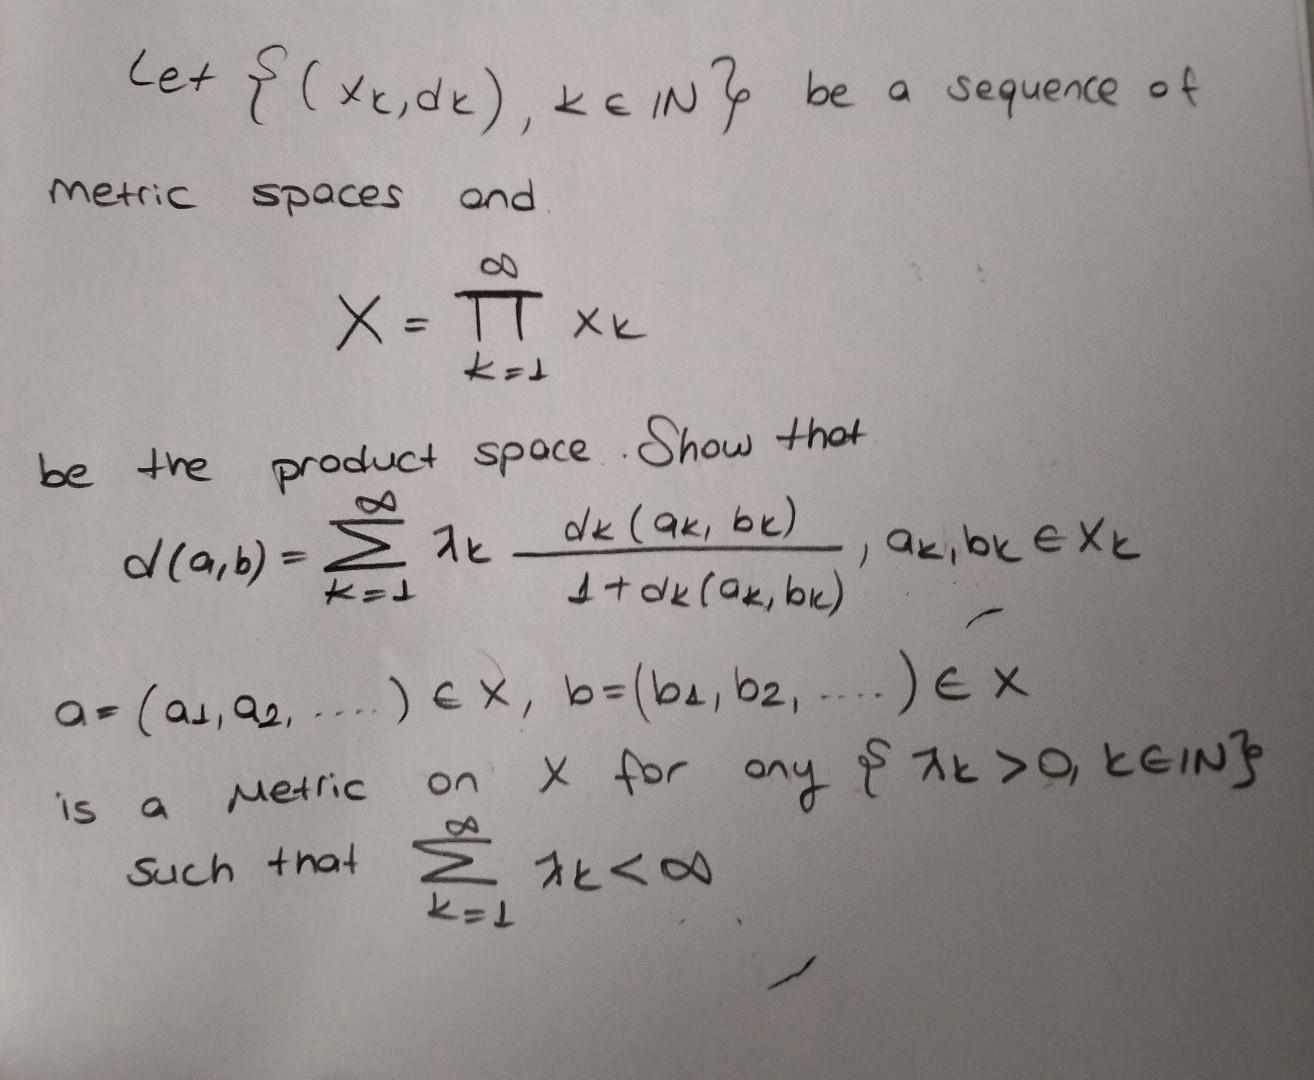 Let {(xk,dk), k ∈ IN} be a sequence of
metric spaces and
X = ∏_{k=1}^{∞} xk
be the product space. Show that
d(a,b) = ∑_{k=1}^{∞} λk dk(ak, bk) / 1+dk(ak, bk), ak,bk ∈ Xk
a=(a1,a2, .....) ∈ X, b=(b1,b2, .....) ∈ X
is a Metric on X for any {λk>0, k∈IN}
such that ∑_{k=1}^{∞} λk<∞